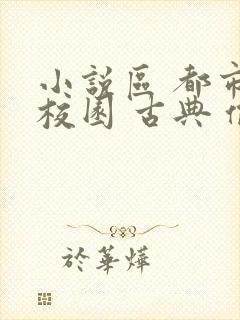 小說區 都市
校園 古典
於華燁